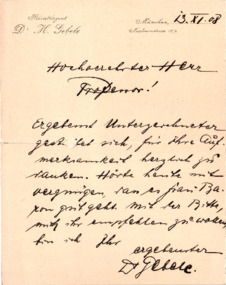 Dr. H. Gebele
München, 13. XI. 08
Hochverehrter Herr
Professor!
Ergebenst Unterzeichneter
gest tet sich, für Ihre Auf-
merksamkeit herzlich zu
danken. Hörte heute mit
vergnügen, dass es frau Ba-
ron gut geht mit der Bitte,
mich ihr empfehlen zu wollen
bin ich Ihr
ergebenster
Dr Gebele.